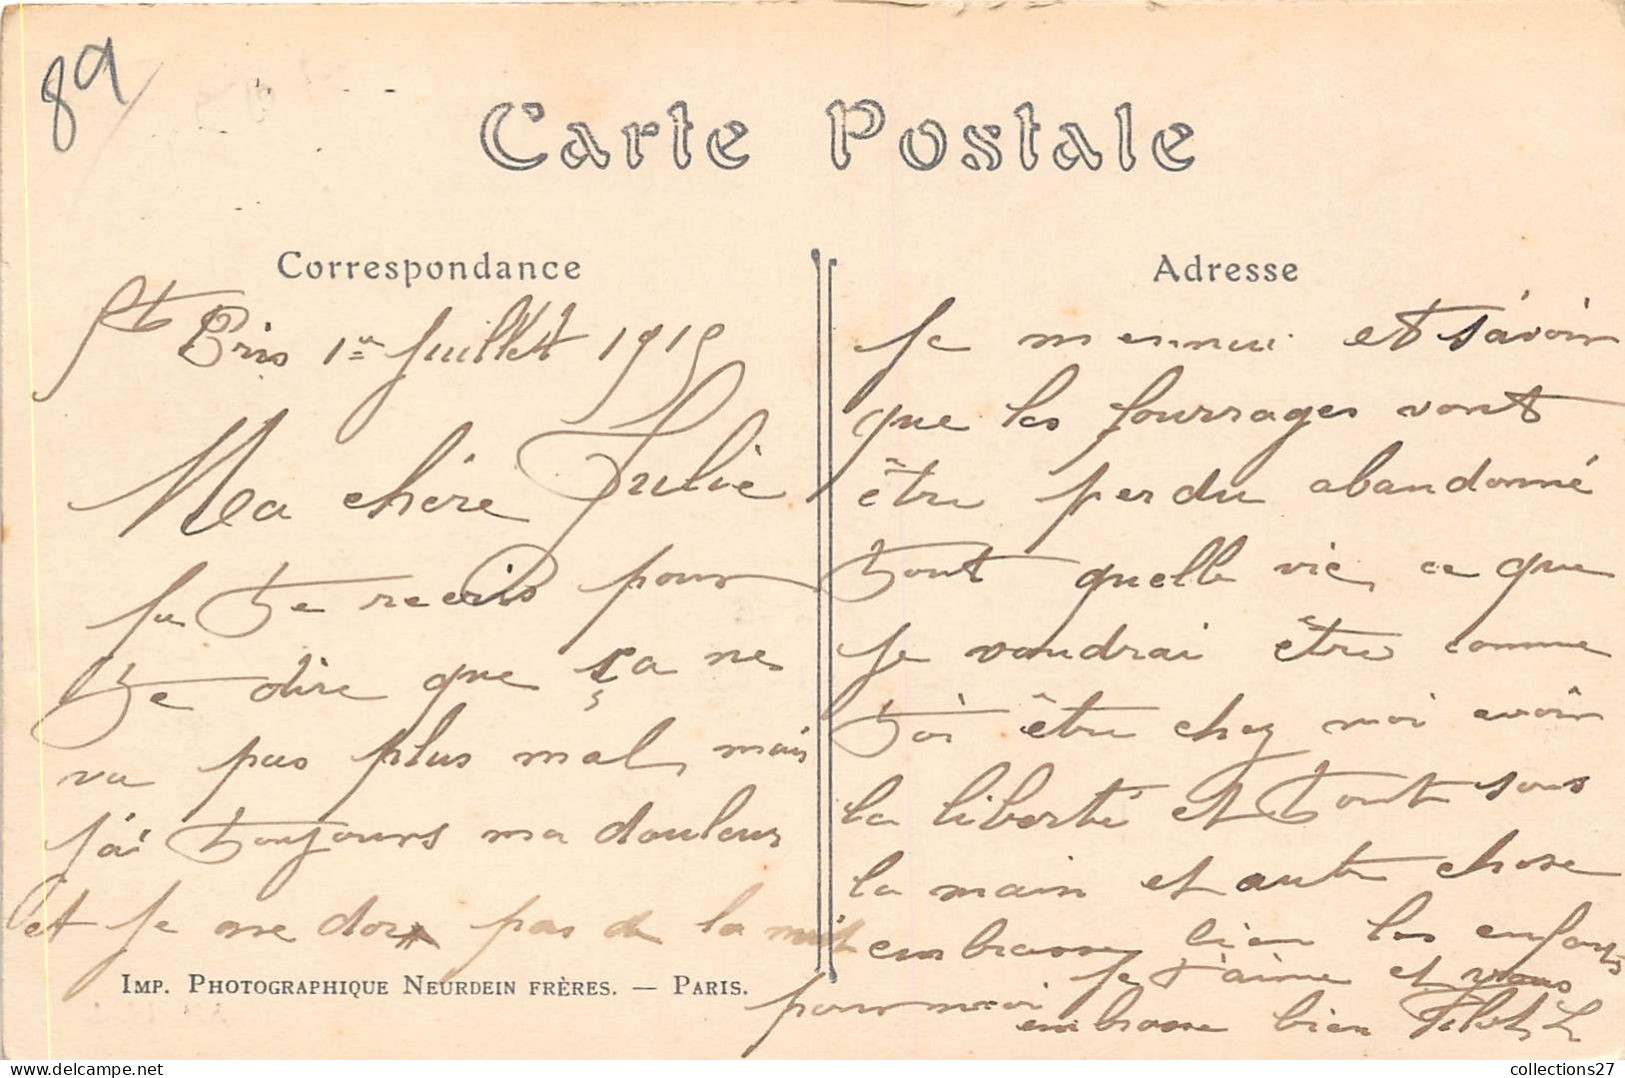 89
Carte Postale
Correspondance
St Bris 1er Juillet 1915
Ma chère Julie
Je te recris pour
te dire que ça ne
va pas plus mal, mais
j'ai toujours ma douleur
et je ne dors pas de la nuit
IMP. PHOTOGRAPHIQUE NEURDEIN FRÈRES. — PARIS.
Adresse
Je mennui et savoir
que les fourrages vont
être perdu abandonné
tout quelle vie, ce que
je voudrai être comme
toi être chez moi avoir
la liberté et tout sous
la main et autre chose
embrasse bien les enfants
pour moi je t'aime et vous
embrasse bien
collections27